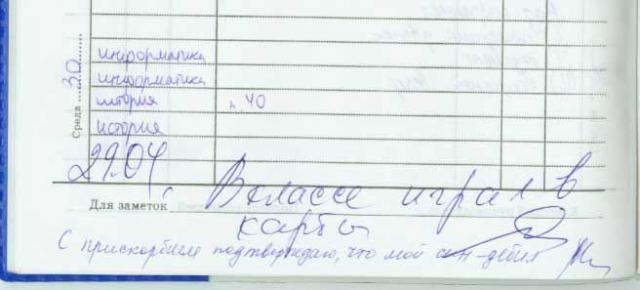 Среда 30
информатика
информатика
история п. 40
история
29.04. В классе играл в
Для заметок
карты
С прискорбием подтверждаю, что мой сын-дебил